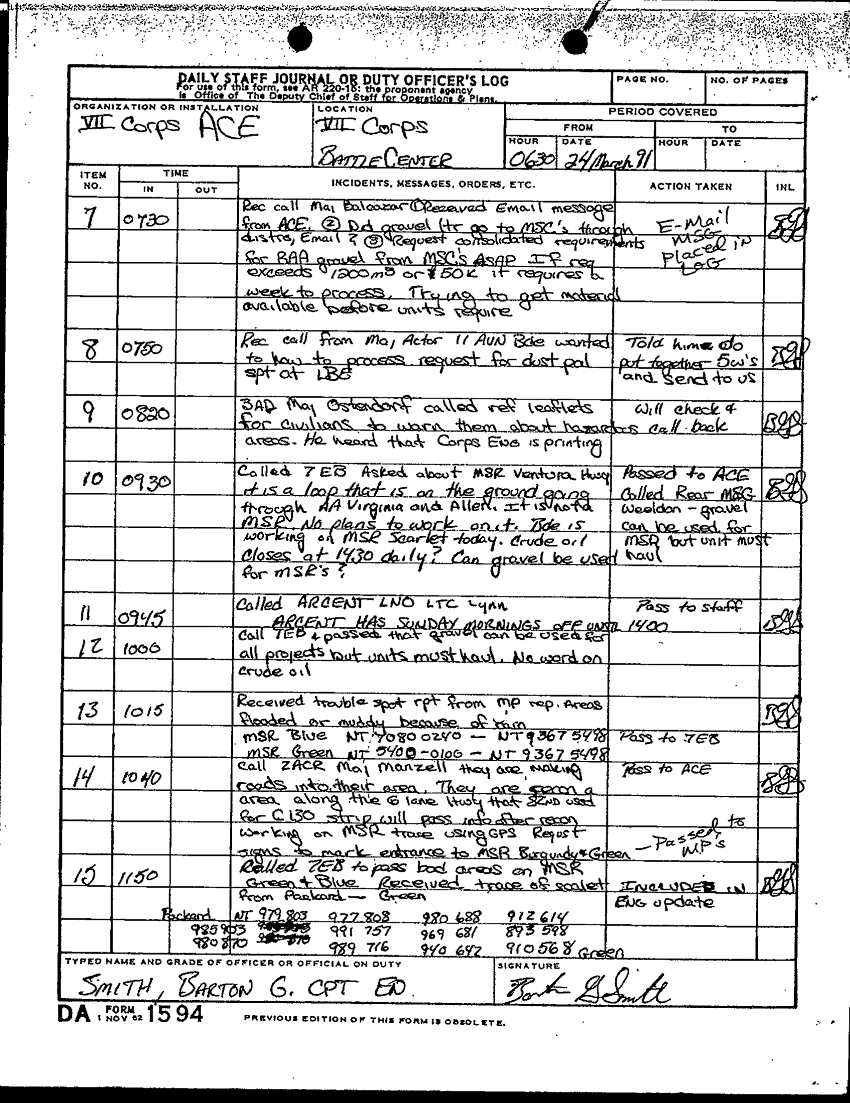 DAILY STAFF JOURNAL OR DUTY OFFICER'S LOG
For use of this form, see AR 220-15: the proponent agency
is Office of The Deputy Chief of Staff for Operations & Plans.
PAGE NO.
NO. OF PAGES
ORGANIZATION OR INSTALLATION
VII Corps ACE
LOCATION
VII Corps
BATTLE CENTER
PERIOD COVERED
FROM
TO
HOUR
DATE
HOUR
DATE
0630
24 March 91
ITEM NO.
TIME
IN
OUT
INCIDENTS, MESSAGES, ORDERS, ETC.
ACTION TAKEN
INL
7 0730 Rec call Maj Balcazar ① Received Email message
from ACE. ② Did gravel ltr go to MSC's through
distro, Email? ③ Request consolidated requirements
for RAA gravel from MSC's ASAP If req
exceeds 1200m³ or $50K it requires a
week to process. Trying to get material
available before units require
E-Mail
MSG
placed in
LOG
8 0750 Rec call from Maj Actor 11 AVN Bde wanted
to how to process request for dust pal
spt at LBE
Told him to do
put together 5w's
and send to us
9 0820 3AD Maj Ostendorf called ref leaflets
for civilians to warn them about hazardos
areas. He heard that Corps ENG is printing
Will check &
call back
10 0930 Called 7EB Asked about MSR Ventura Hwy
it is a loop that is on the ground going
through AA Virginia and Allen. It is not a
MSR. No plans to work on it. Bde is
working on MSR Scarlet today. Crude oil
closes at 1430 daily? Can gravel be used
for MSR's?
Passed to ACE
Called Rear MSG
Weeldon - gravel
can be used for
MSR but unit must
haul
11 0945 Called ARCENT LNO LTC Lynn
ARCENT HAS SUNDAY MORNINGS OFF UNTIL 1400
Pass to staff
12 1000 Call 7EB & passed that gravel can be used for
all projects but units must haul. No word on
crude oil
13 1015 Received trouble spot rpt from MP rep. Areas
flooded or muddy because of rain
MSR Blue NT 70800240 - NT 93675498
MSR Green NT 5400-0100 - NT 93675498
Pass to 7EB
14 1040 Call 2ACR Maj Manzell they are making
roads into their area. They are recon a
area along the 6 lane Hwy that 82ND used
for C130 strip will pass info after recon
working on MSR trace using GPS Reqst
signs to mark entrance to MSR Burgundy & Green
Pass to ACE
- Passed to
MP's
15 1150 Called 7EB to pass bad areas on MSR
Green & Blue Received trace of scalet
from Packard - Green
INCLUDED IN
ENG update
Packard NT 979 803 977 808 980 688 912 614
985 903 991 757 969 681 893 598
980 870 989 716 940 642 910 568 Green
TYPED NAME AND GRADE OF OFFICER OR OFFICIAL ON DUTY
SMITH, BARTON G. CPT EN
SIGNATURE
Barton G Smith
DA FORM 1 NOV 62 1594
PREVIOUS EDITION OF THIS FORM IS OBSOLETE.